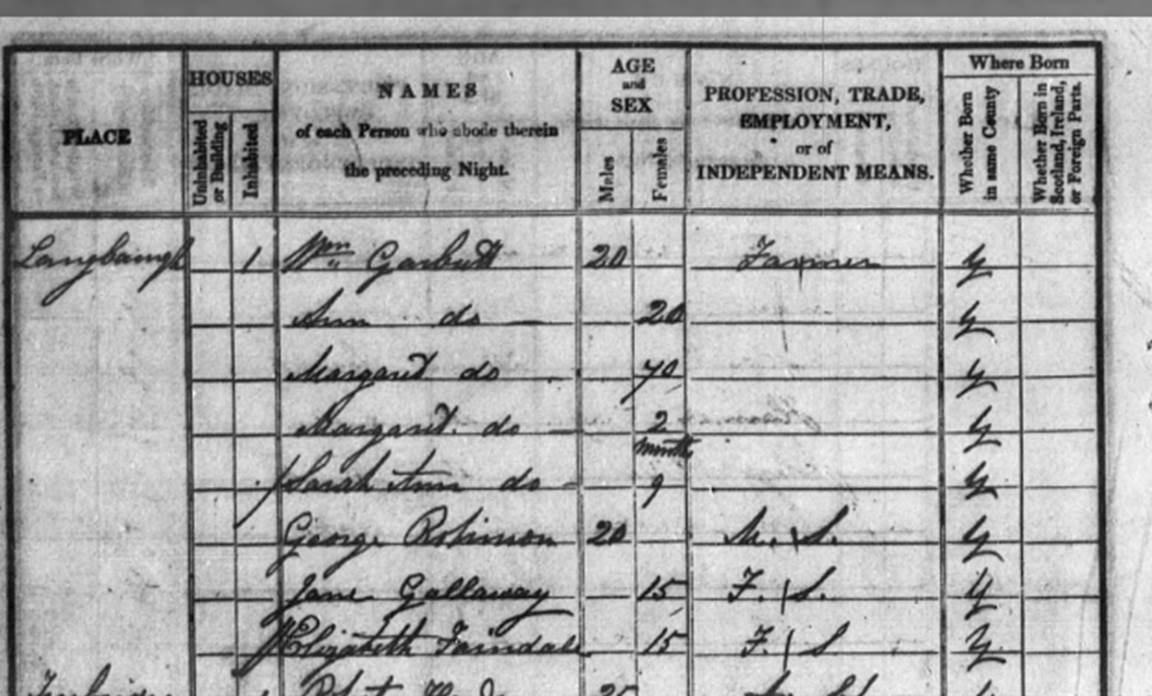 PLACE HOUSES Uninhabited or Building Inhabited NAMES of each Person who abode therein the preceding Night. AGE and SEX Males Females PROFESSION, TRADE, EMPLOYMENT, or of INDEPENDENT MEANS. Where Born Whether Born in same County Whether Born in Scotland, Ireland, or Foreign Parts.
Langbaurgh 1 Wm Garbutt 20 Farmer y
Ann do 20 y
Margaret do 70 y
Margaret do 2 y
months
Sarah Ann do 9 y
George Robinson 20 M. S. y
Jane Gallaway 15 F. S. y
Elizabeth Farndale 15 F. S y
Robert 25